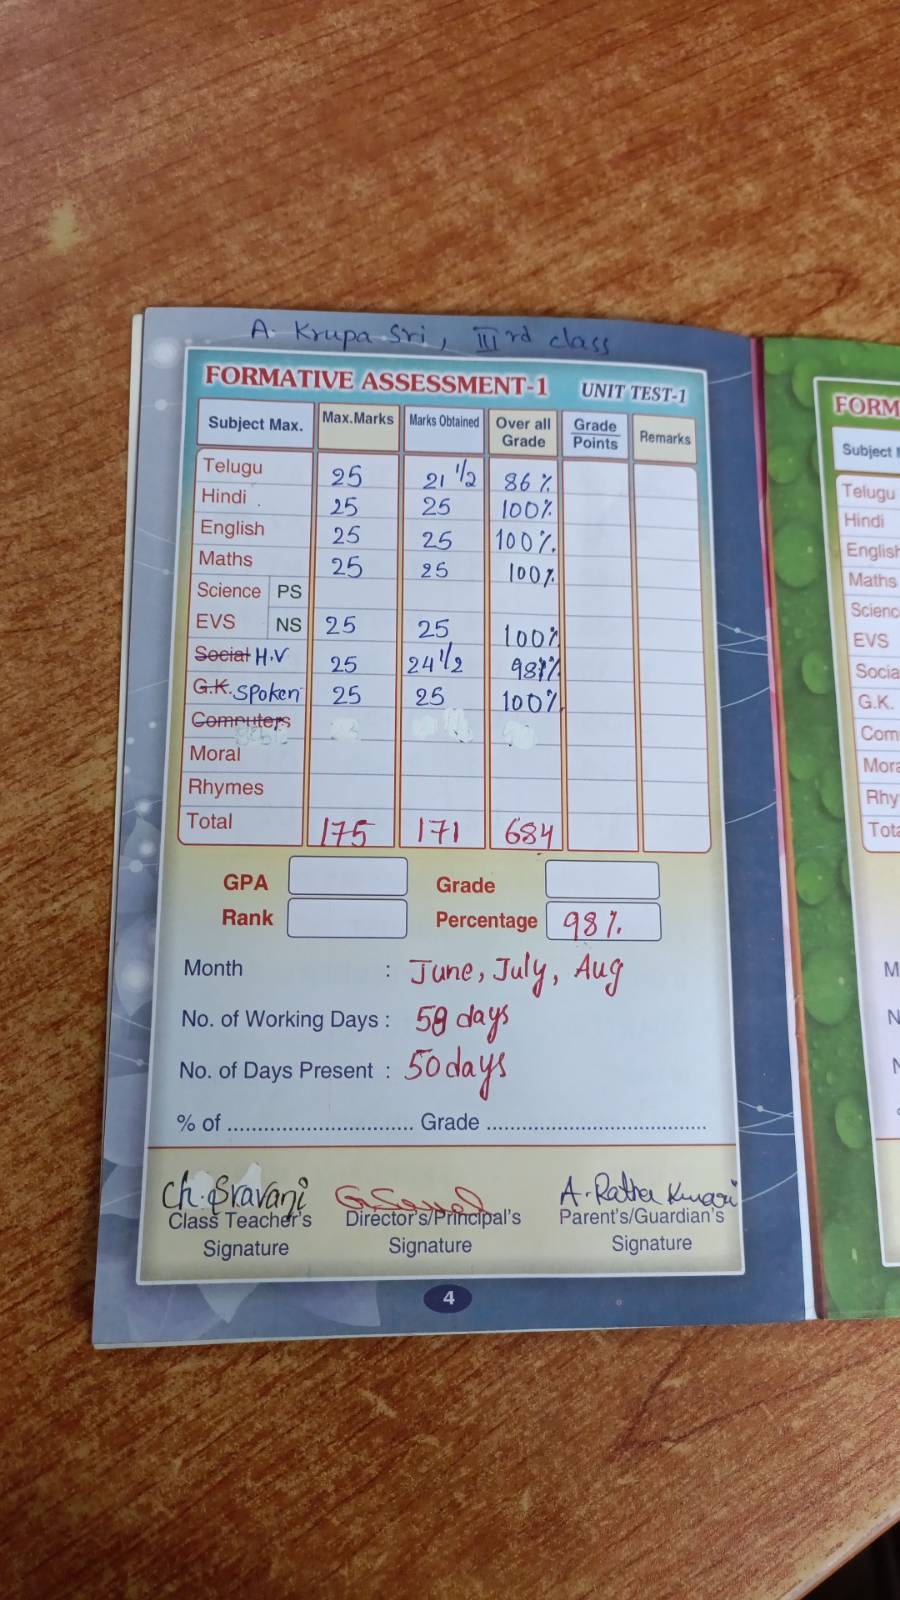 A. Krupa Sri, IIIrd class
FORMATIVE ASSESSMENT-1 UNIT TEST-1
Subject Max. Max.Marks Marks Obtained Over all Grade Grade Points Remarks
Telugu 25 21 1/2 86 %
Hindi 25 25 100%
English 25 25 100%.
Maths 25 25 100%
Science PS
EVS NS 25 25 100%
Social H.V 25 24 1/2 98%
G.K. Spoken 25 25 100%
Computers
Moral
Rhymes
Total 175 171 684
GPA Grade
Rank Percentage 98%
Month : June, July, Aug
No. of Working Days : 58 days
No. of Days Present : 50 days
% of ............................... Grade .....................................
Ch. Sravani
Class Teacher's Director's/Principal's Parent's/Guardian's
Signature Signature Signature
4
FORM
Subject
Telugu
Hindi
English
Maths
Scienc
EVS
Socia
G.K.
Com
Mora
Rhy
Tota
M
N